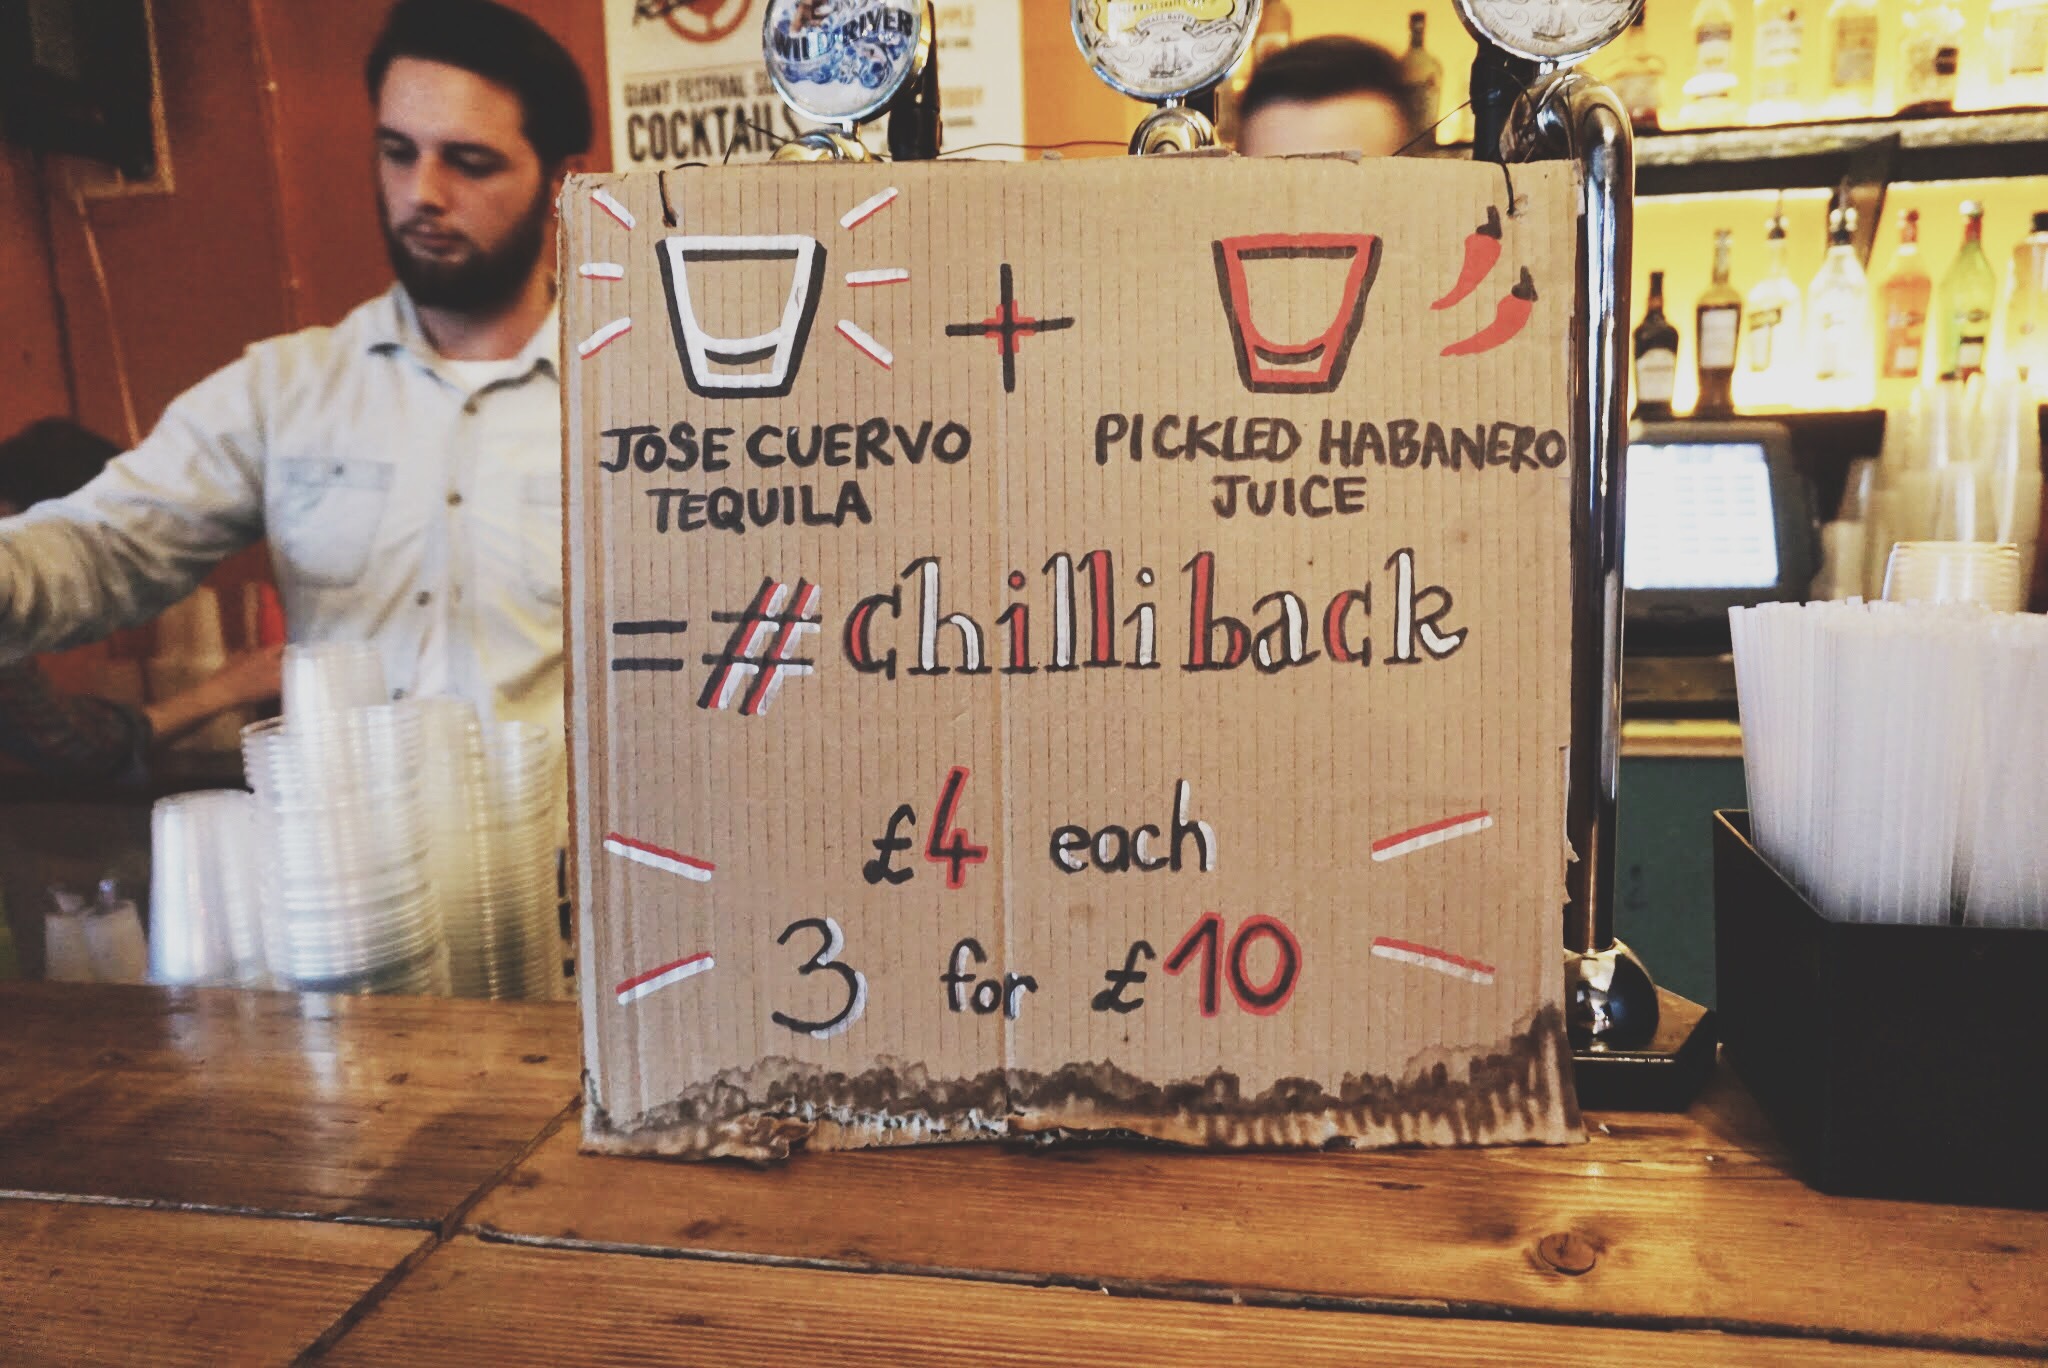 WILD RIVER
GIANT FESTIVAL
COCKTAILS
SMALL BATCH
JOSE CUERVO
TEQUILA
+
PICKLED HABANERO
JUICE
= #chilliback
£4 each
3 for £10